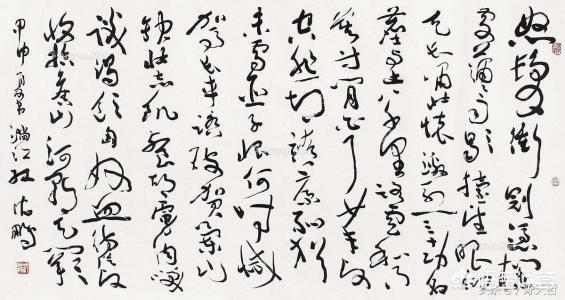 怒髮衝冠憑欄
處瀟瀟雨歇擡望眼仰
天長嘯壯懷激烈三十功名
塵與土八千里路雲和月
莫等閒白了少年頭
空悲切靖康恥猶
未雪臣子恨何時滅
駕長車踏破賀蘭山
缺壯志飢餐胡虜肉笑
談渴飲匈奴血待從頭
收拾舊山河朝天闕
甲申夏書滿江紅 沈鵬